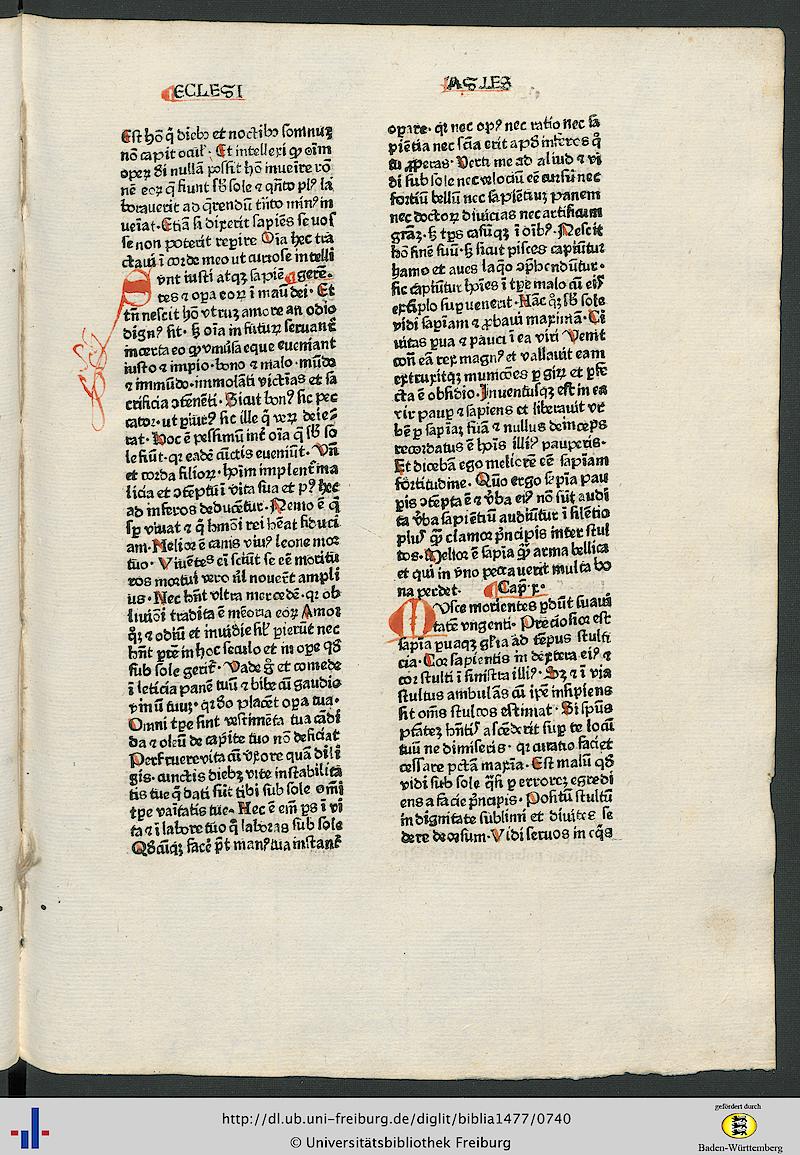 ECLESI
ASTES
Est hō q̄ diebꝫ et noctibꝫ somnuꝫ
nō capit oculꝭ. Et intellexi ꝙ oīm
operꝝ dei nullā possit hō inuēire rō
nē eoꝝ q̄ fiunt sb̄ sole ⁊ qn̄to plꝰ la
borauerit ad q̄rendū tāto minꝰ in
ueīat. Etiā si dixerit sapiēs se nos
se non poterit reꝑire Oīa hec tra
ctaui ī corde meo ut curiose intelli
gerē.
Sunt iusti atqꝫ sapiē
tes ⁊ oꝑa eoꝝ ī manū dei. Et
tn̄ nescit hō utruꝫ amore an odio
dignꝰ sit. sꝫ oīa in futuꝝ seruant̄
incerta eo ꝙ vniūsa eque eueniant
iusto ⁊ impio. bono ⁊ malo. mūdo
⁊ immūdo. immolāti victīas et sa
crificia ↄtēnēti. Sicut bonꝰ sic pec
cator. ut ꝑiurꝰ sic ille q̄ veꝝ deie
rat. Hoc ē pessimū int̄ oīa q̄ sb̄ so
le fiūt. qꝛ eadē cūctis eueniūt. Vn̄
et corda filioꝝ hoīm implent̄ ma
licia et ↄtēptu ī vita sua et pꝰ hec
ad inferos deducētur. Nemo ē q̄
sꝑ viuat ⁊ q̄ hmōi rei hēat fiduci
am. Melior ē canis viuꝰ leone mor
tuo. Viuētes ei sciūt se eē moritu
ros mortui vero nl̄ nouerūt ampli
ius. Nec hn̄t vltra mercedē. qꝛ ob
liuiōi tradita ē mēoria eoꝝ Amor
qꝫ ⁊ odiū et inuidie siĺ ꝑierūt nec
hn̄t ꝑtē in hoc seculo et in oꝑe qḋ
sub sole gerit̄. Vade ḡ et comede
ī leticia panē tuū ⁊ bibe cū gaudio
vinū tuuꝫ. qꝛ do placēt oꝑa tua.
Omni tꝑe sint vestimēta tua cādi
da ⁊ oleū de capite tuo nō deficiat
Perfruere vita cū vxore quā dili
gis. cunctis diebꝫ vite instabilita
tis tue q̄ dati sūt tibi sub sole omī
tꝑe vaītatis tue. Hec ē em̄ ꝑs ī vi
ta ⁊ ī labore tuo q̄ laboras sub sole
Qḋcūqꝫ facē pt̄ manꝰ tua instant̄
oꝑare. qꝛ nec opꝰ nec ratio nec sa
piētia nec scīa erit apḋ inferos q̄
tu ꝓperas. Verti me ad aliud ⁊ vi
di sub sole nec velociū eē cursū nec
fortiū bellū nec sapiētiuꝫ panem
nec doctoꝝ diuicias nec artificum
grāꝫ. sꝫ tꝑs casūqꝫ ī oībꝰ. Nescit
hō finē suū. sꝫ sicut pisces capiūtur
hamo et aues laq̄o ↄp̄hendūtur.
sic capiūtur hoīes ī tꝑe malo cū eiꝭ
extīplo suꝑuenerit. Hāc qꝫ sb̄ sole
vidi sapiam ⁊ ꝓbaui maximā. Ci
uitas ꝑua ⁊ pauci ī ea viri Venit
cōn̄ eā rex magnꝰ et vallauit eam
extruxitqꝫ municōes ꝑ giꝝ et ꝑfe
cta ē obsidio. Inuentusqꝫ est in ea
vir pauꝑ ⁊ sapiens et liberauit vr
bē ꝑ sapīaꝫ suā ⁊ nullus deinceps
recordatus ē hoīs illiꝰ pauꝑis.
Et dicebā ego meliorē eē sapīam
fortitudine. Quō ergo sepīa pau
ꝑis ↄtēpta ē ⁊ v̄ba eiꝰ nō sūt audi
ta v̄ba sapiētiū audiūtur ī silētio
plusꝰ qꝫ clamor pn̄cipis inter stul
tos. Melior ē sapīa qꝫ arma bellica
et qui in vno peccauerit multa bo
na ꝑerdet. Cap. x.
Musce morientes ꝑdūt suaui
tatē vngenti. Preciosior est
sapīa ꝑuaqꝫ glīa ad tēpus stulti
cia. Cor sapientis in dextera eiꝰ ⁊
cor stulti ī sinistra illiꝰ. Sꝫ ⁊ ī via
stultus ambulās cū ip̄e insipiens
sit om̄s stultos estimat. Si sp̄us
ptātez hn̄tꝭ ascēderit suꝑ te locū
tuū ne dimiseris. qꝛ curatio faciet
cessare pctā maxīa. Est malū qḋ
vidi sub sole q̄si ꝑ erroreꝫ egredi
ens a facie pn̄cipis. Positū stultū
in dignitate sublimi et diuites se
dere deorsum. Vidi seruos in eq̄s
http://dl.ub.uni-freiburg.de/diglit/biblia1477/0740
© Universitätsbibliothek Freiburg
gefördert durch
Baden-Württemberg